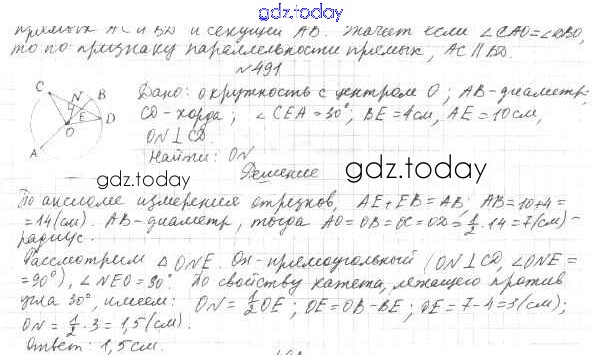 gdz.today
прямых АС и BD и секущей АВ. Значит если ∠CAO=∠DBO,
то по признаку параллельности прямых, AC || BD.
№491
C N B
E D
O
A
Дано: окружность с центром О; АВ-диаметр;
CD-хорда; ∠CEA=30°; BE=4см, AE=10см,
ON⊥CD.
Найти: ON
gdz.today
Решение
gdz.today
По аксиоме измерения отрезков, AE+EB=AB; AB=10+4=
=14(см). АВ-диаметр, тогда AO=OB=OC=OD=1/2·14=7(см)-
радиус.
Рассмотрим △ONE. Он-прямоугольный (ON⊥CD, ∠ONE=
=90°), ∠NEO=30°. По свойству катета, лежащего против
угла 30°, имеем: ON=1/2OE; OE=OB-BE; OE=7-4=3(см);
ON=1/2·3=1,5(см).
Ответ: 1,5см.
gdz.today